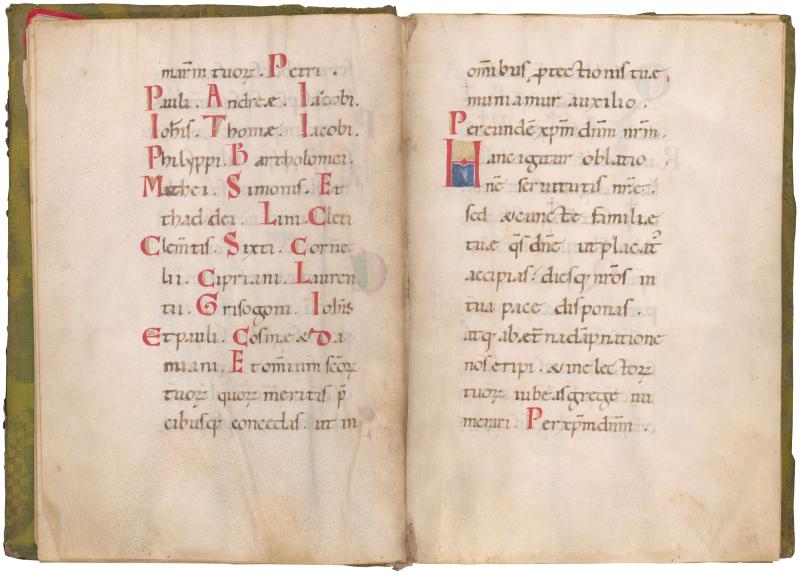 martm tuoꝝ. Petri.
Pauli. Andreæ. Iacobi.
Iohis. Thomæ. Iacobi.
Philyppi. Bartholomei.
Mathei. Simonis. Et
thaddei. Lini. Cleti
Clemtis. Sixti. Corne
lii. Cipriani. Lauren
tii. Grisogoni. Iohis
Et pauli. Cosmæ & Da
miani. Et omium scoꝝ
tuoꝝ quoꝝ meritis p̄
cibusq; concedas. ut in
om̄ibus ꝓtectionis tuæ
muniamur auxilio.
Per eundē xp̄m dn̄m nr̄m.
Hanc igitur oblatio
nē seruitutis nr̄e.
sed & cunctæ familiæ
tuæ q̄s dn̄e ut placat᷒
accipias. diesq; nr̄os in
tua pace disponas.
atq; ab æt̄na dāpnatione
nos eripi. & in electoꝝ
tuoꝝ iubeas grege nu
merari. Per xp̄m dn̄m.